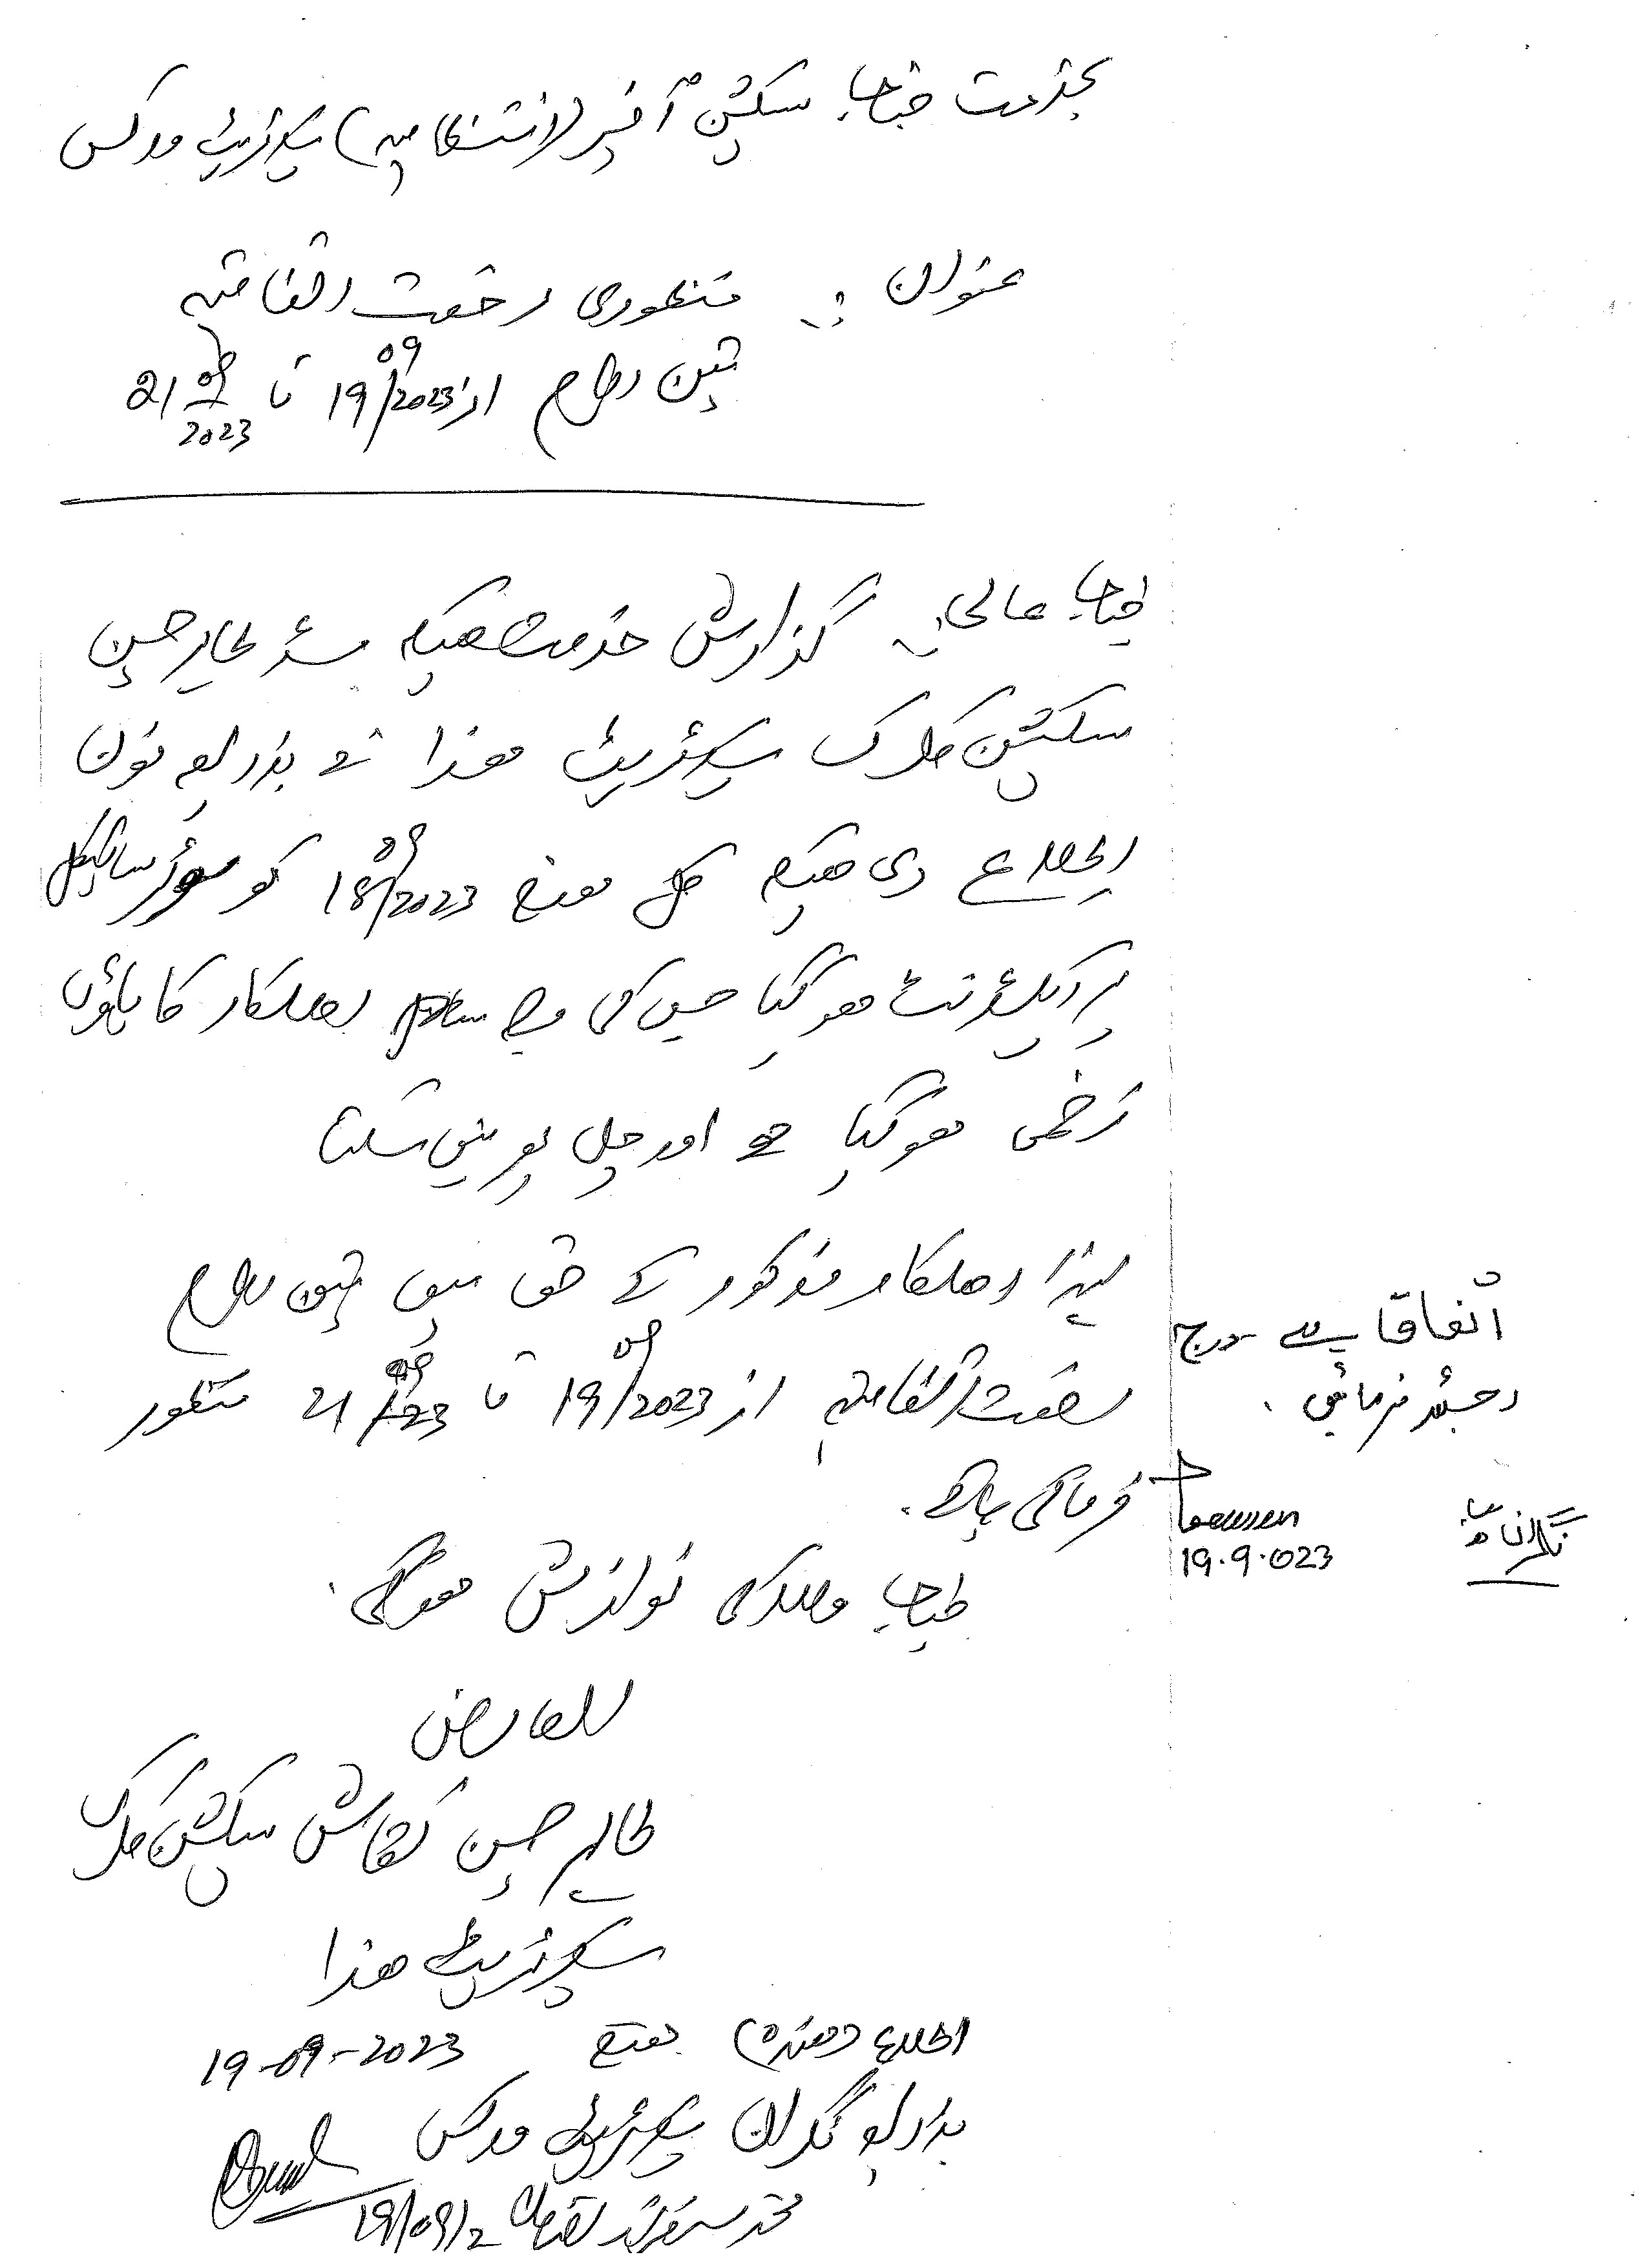 بخدمت جناب سکشن آفیسر (انتظامیہ) سیکرٹریٹ ورکس
عنوان :۔ منظوری رخصت اتفاقیہ
تین یوم از 19/09/2023 تا 21/09/2023
جناب عالی:۔ گذارش خدمت ھیکہ مسٹر طاہر حسین
سکشن کلرک سیکرٹریٹ ھذا نے بذریعہ فون
اطلاع دی ھیکہ کل مورخہ 18/09/2023 کو موٹر سائیکل
پر ایکسیڈنٹ ھو گیا جس کی وجہ سے اھلکار کا پاؤں
زخمی ھو گیا ہے اور چل پھر نہیں سکتا
لہذا اھلکار مذکور کے حق میں تین یوم
رخصت اتفاقیہ از 19/09/2023 تا 21/09/23 منظور
فرمائی جائے۔
جناب والا کی نوازش ھو گی۔
العارض
طاہر حسین سکشن کلرک
سیکرٹریٹ ھذا
(اطلاع دھندہ) مورخہ 19-09-2023
بذریعہ نگران سیکرٹریٹ ورکس
محمد 19/09/2
اتفاقیہ درج
رجسٹر فرمائیں۔
19.9.023
نگران صاحب